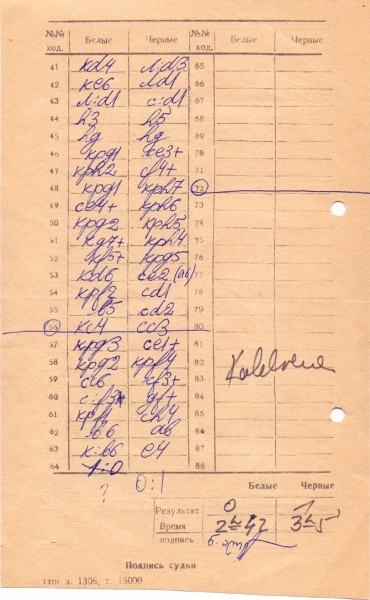 №№ ход. Белые Черные №№ ход. Белые Черные
41 Kd4 Л:d3 65
42 Ke6 Лd1 66
43 Л:d1 c:d1 67
44 h3 h5 68
45 hg hg 69
46 Kpg1 ce3+ 70
47 Kph2 cf4+ 71
48 Kpg1 Kph7 72
49 ce4+ Kph6 73
50 Kpg2 Kph5 74
51 Kg7+ Kph4 75
52 Kf5+ Kpg5 76
53 Kd6 ce2 (a6) 77
54 Kpf2 cd1 78
55 b5 cd2 79
56 Kc4 cc3 80
57 Kpg3 ce1+ 81
58 Kpg2 Kpf4 82
59 cc6 gf3+ 83
60 c:f3+ gf+ 84
61 Kpf1 ch4 85
62 b6 ab 86
63 K:b6 e4 87
64 1:0 88
? 0:1
Белые Черные
Результат 0 1
Время 2 42 3 5
подпись
Подпись судьи
ттог з. 1306, т. 15000